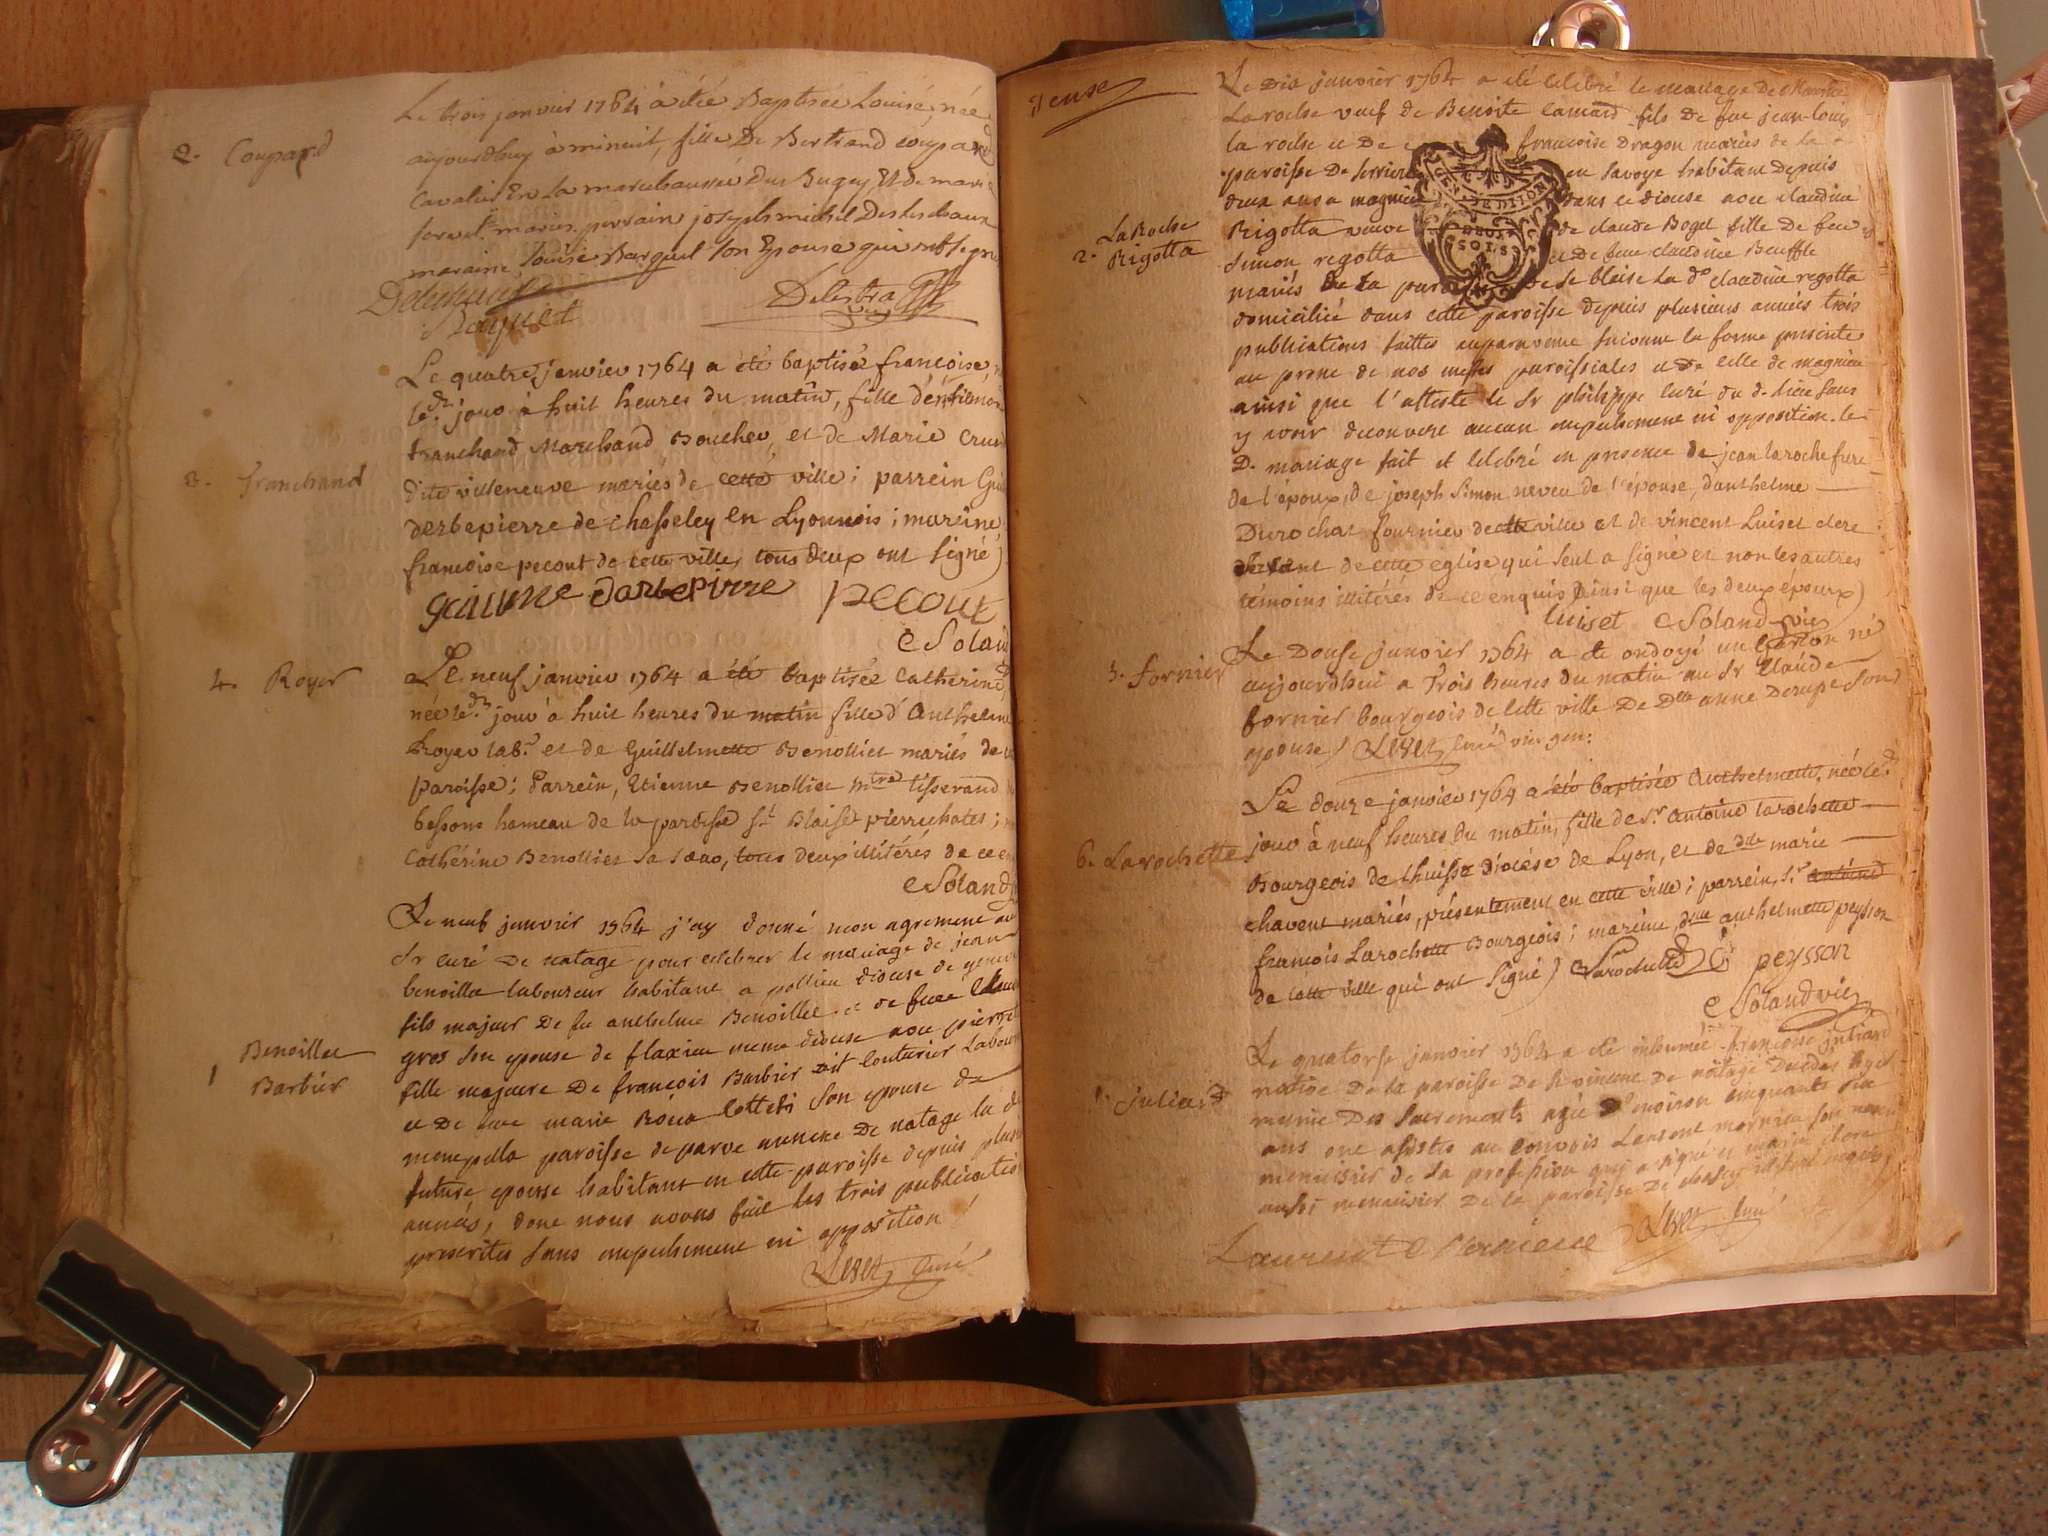 Le trois janvier 1764 à étée Baptisée Louise, née
2. Coupard
aujourdhuy à minuit, fille De Bertrand coupard
Cavalier En la marechaussée du Bugey Et de marie
mariés. parrain joseph michel Deslechaux
maraine Louise Barquet son Epouse qui ont signé
Baquet
Le quatre janvier 1764 a été baptisée françoise
led. jour à huit heures du matin, fille d'
tranchand Marchand Boucher, et de Marie
3. Tranchand
dite villeneuve mariés de cette ville; parrein
derbepierre de chasseley en Lyonnois; mareine
françoise pecout de cette ville, tous deux ont signé)
guiume darbepirre pecout
e Soland
4. Royer
Le neuf janvier 1764 a été baptisée Catherine
née led. jour à huit heures du matin fille d'Anthelme
Royer labr. et de Guillelmette Benolliet mariés de
paroisse; Parrein, Etienne Benolliet mtre tisserand
bessons hameau de la paroisse st Blaise pierrechatel;
Cathérine Benolliet sa sœur, tous deux illitérés de ce
e Soland
Le neuf janvier 1764 j'ay donné mon agrement au
Sr curé De natage pour celebrer le mariage de jean
benoillet laboureur habitant a pollieu diocese de geneve
fils majeur De fu anthelme Benoillet et de feue
gros son epouse de flaxieu meme diocese avec pierrette
1 Benoillet
Barbier
fille majeure De françois Barbier dit couturier
et De feue marie son epouse de
paroisse de parve annexe De natage la d
future epouse habitant en cette paroisse depuis plusieurs
années, dont nous avons fait les trois publications
prescrites sans empechement ni opposition
curé
Le Dix janvier 1764 a eté celebré le mariage De Maurice
La roche veuf de Benoite camard fils de feu jean-louis
la roche et De françoise Dragon mariés de la
paroisse De en savoye habitant depuis
deux ans a magnieu dans ce diocese avec claudine
La Roche
2. Rigotta
Rigotta veuve de claude Boget fille De feu
simon regotta et de feue claudine Beuffle
mariés de la de st blaise la de claudine regotta
domiciliée dans cette paroisse depuis plusieurs années trois
publications faittes auparavant suivant la forme prescrite
au prone de nos messes paroissiales et de celle de magnieu
ainsi que l'atteste le Sr philippe curé du d. lieu sans
y avoir decouvert aucun empechement ni opposition. le
D. mariage fait et celebré en presence de jean laroche frere
de l'époux, de joseph simon neveu de l'epouse, danthelme
Durochat fournier de cette ville et de vincent Luiset clerc
servant de cette eglise qui seul a signé et non les autres
témoins illitérés de ce enquis (ainsi que les deux epoux)
luiset e Soland vic
5. fornier
Le Douse janvier 1764 a eté ondoyé un garçon né
aujourdhui a trois heures du matin au Sr Claude
fornier bourgeois de cette ville De Dlle anne Derupe son
epouse) curé
Le douze janvier 1764 a été baptisée Anthelmette, née led.
jour à neuf heures du matin, fille de sr Antoine larochette
6. Larochette
Bourgeois de Lhuisse Diocése de Lyon, et de dlle marie
chavent mariés, présentement en cette ville; parrein, sr antoine
françois Larochette Bourgeois; mareine, dlle anthelmette peysson
de cette ville qui ont signé) Larochette peysson
e Soland vic
Le quatorse janvier 1764 a eté inhumée françoise juliard
native De la paroisse De st vincent De natage
1. juliard
munie Des sacrements agée D'environ cinquante six
ans ont assisté au convois Laurent mornieu son neveu
menuisier de sa profession qui a signé et
aussi menuisier De la paroisse De
curé
Laurent